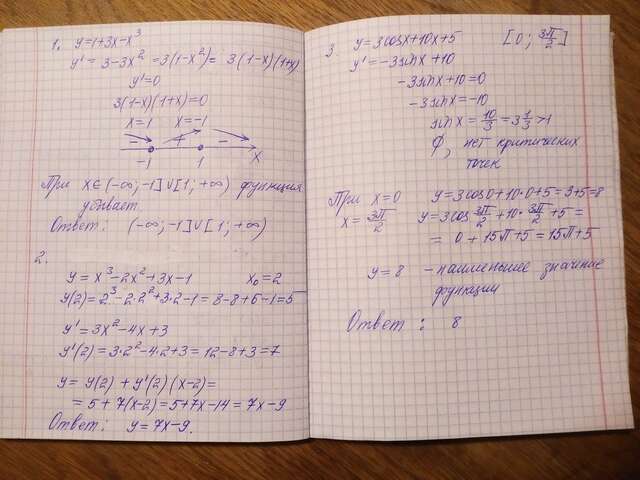 1. y=1+3x-x³
y' = 3-3x² = 3(1-x²) = 3(1-x)(1+x)
y'=0
3(1-x)(1+x)=0
x=1 x=-1
- + -
-1 1 x
При x∈(-∞;-1]∪[1;+∞) функция
убывает
Ответ: (-∞;-1]∪[1;+∞)
2.
y = x³-2x²+3x-1 x₀=2
y(2)=2³-2·2²+3·2-1=8-8+6-1=5
y'=3x²-4x+3
y'(2)=3·2²-4·2+3=12-8+3=7
y = y(2) + y'(2)(x-2)=
= 5+7(x-2)=5+7x-14=7x-9
Ответ: y=7x-9.
3. y=3cosx+10x+5 [0; 3π/2]
y'=-3sinx+10
-3sinx+10=0
-3sinx=-10
sinx=10/3=3 1/3>1
∅, нет критических
точек
При x=0 y=3cos0+10·0+5=3+5=8
x=3π/2 y=3cos 3π/2+10·3π/2+5=
= 0+15π+5=15π+5
y=8 -наименьшее значение
функции
Ответ: 8